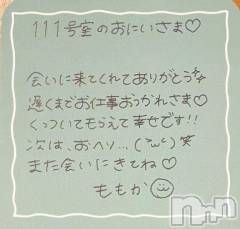 111号室のおにいさま♡
会いに来てくれてありがとう
遅くまでお仕事おつかれさま♡
くっついてもらえて幸せです!!
次は、おヘソ…(´ω`)笑
また会いにきてね♡
ももか